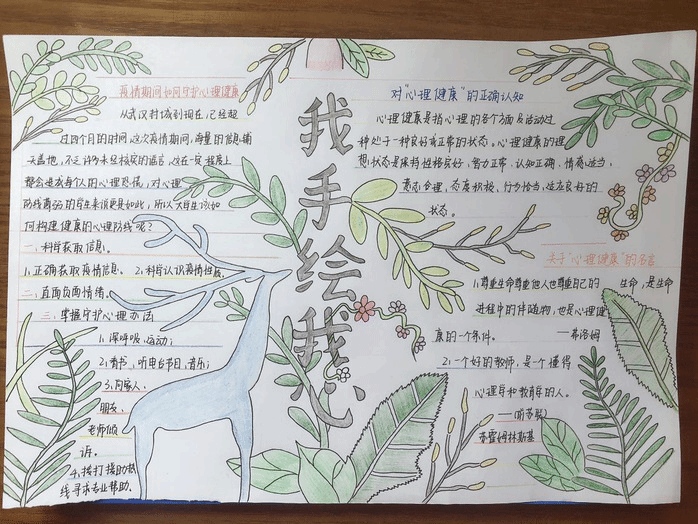 疫情期间如何守护心理健康
从武汉封城到现在,已经超
过四个月的时间,这次疫情期间,海量的信息铺
天盖地,不乏许多未经核实的谣言,这在一定程度上
都会造成每个人的心理恐慌,对心理
防线薄弱的学生来说更是如此,所以大学生该如
何构理健康的心理防线呢?
一、科学获取信息。
1.正确获取疫情信息。 2.科学认识疫情性质。
二、直面负面情绪。
三、掌握守护心理办法
1、深呼吸,运动;
2、看书,听电台节目,音乐;
3、向家人、
朋友、
老师倾
诉。
4、拨打援助热
线寻求专业帮助。
我手绘我心
对“心理健康”的正确认知
心理健康是指心理的各个方面及活动过
程处于一种良好或正常的状态。心理健康的理
想状态是保持性格完好、智力正常、认知正确、情感适当、
意志合理、态度积极、行为恰当、适应良好的
状态。
关于“心理健康”的名言
1.尊重生命尊重他人也尊重自己的 生命,是生命
进程中的伴随物,也是心理健
康的一个条件。
——弗洛姆
2.一个好的教师,是一个懂得
心理学和教育学的人。
——(前苏联)
苏霍姆林斯基